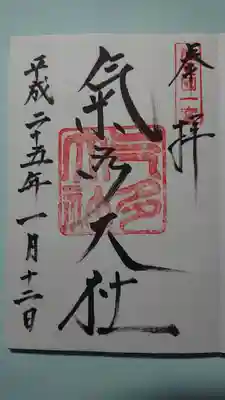 奉拝
氣多大社
平成二十五年一月十二日